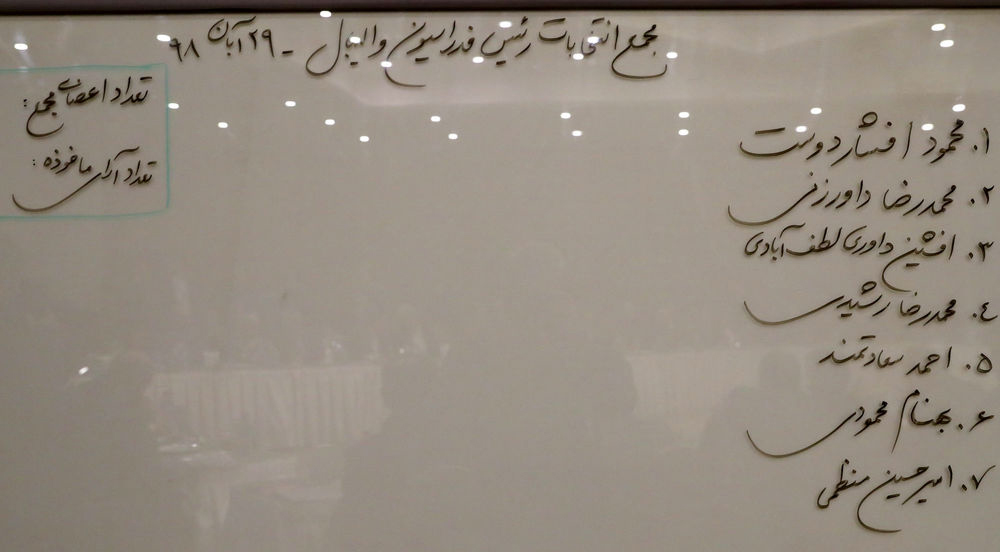 مجمع انتخابات رئیس فدراسیون والیبال - ۲۹ آبان ۹۸
۱. محمود افشاردوست
۲. محمدرضا داورزنی
۳. افشین داوری لطف آبادی
٤. محمدرضا رشیدی
۵. احمد سعادتمند
۶. بهنام محمودی
۷. امیرحسین منظمی
تعداد اعضای مجمع :
تعداد آرای ماخوذه :